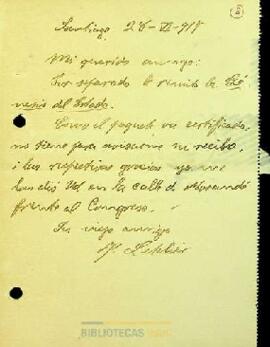 Santiago, 26-VI-918
Mi querido amigo:
Por separado le remito la
del Soldado.
Como el paquete va certificado
no tiene para avisarme su recibo,
i las respectivas gracias ya me
las dió Ud en la calle de Morandé
frente al Congreso.
Su viejo amigo
BIBLIOTECAS